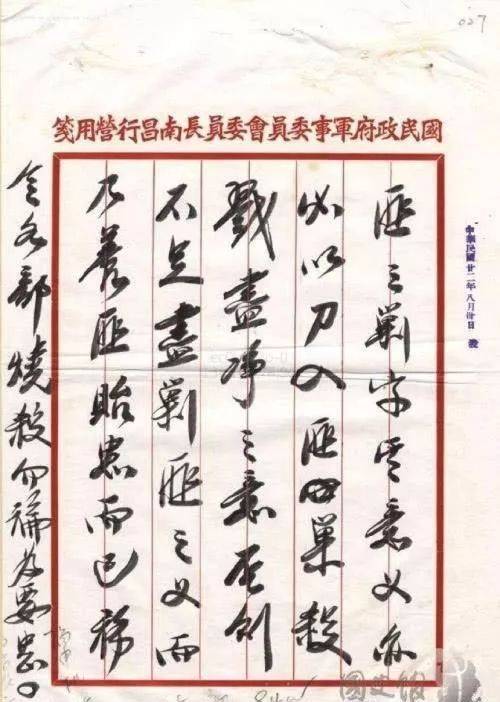 027
國民政府軍事委員會委員長南昌行營用箋
中華民國廿二年八月卅日 發
匪之剿字意义亦
必以刀入匪巢殺
戮盡淨之意否則
不足盡剿匪之义而
乃養匪貽患而已稀
令各部燒殺勿論為要
國史館